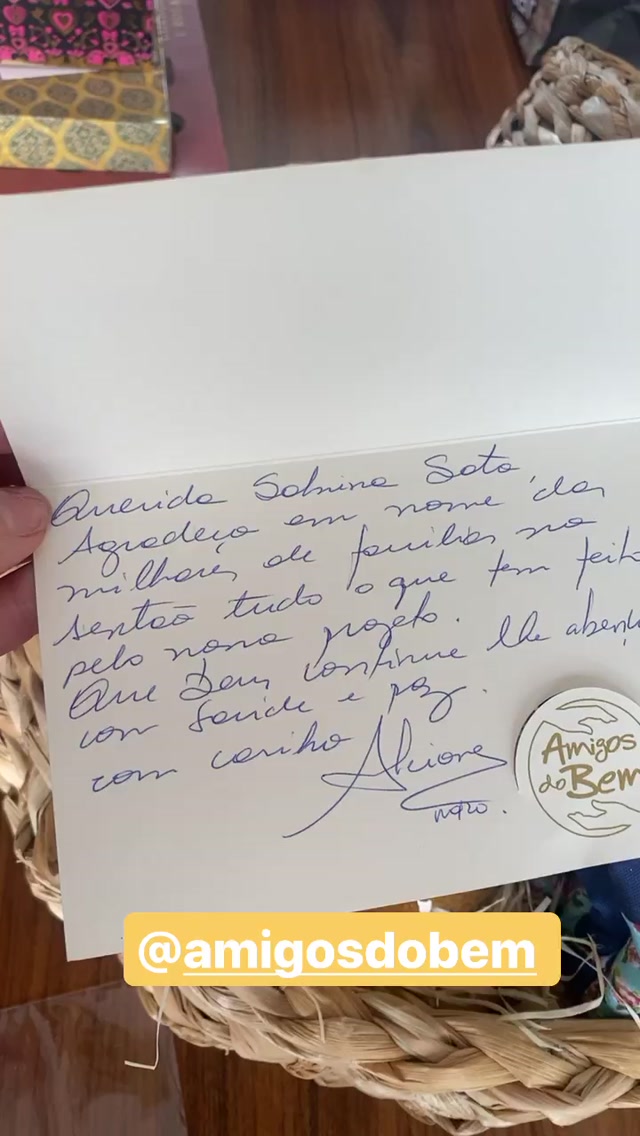 Querida Sabrina Sato,
Agradeço em nome das
milhares de famílias no
sertão tudo o que tem feito
pelo nosso projeto.
Que Deus continue lhe abenç
com saúde e paz.
com carinho
Alcione
Amigos
do Bem
@amigosdobem